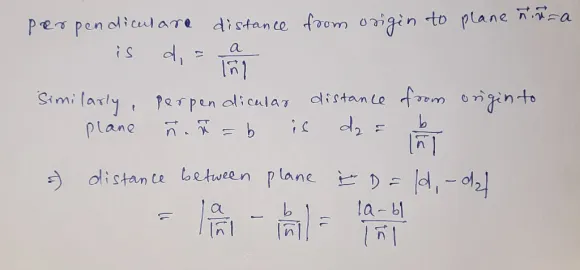 perpendiculare distance from origin to plane n⃗.x⃗=a
is d₁ = a/|n⃗|
Similarly, perpendicular distance from origin to
plane n⃗.x⃗ = b is d₂ = b/|n⃗|
⇒ distance between plane is D = |d₁-d₂|
= |a/|n⃗| - b/|n⃗|| = |a-b|/|n⃗|